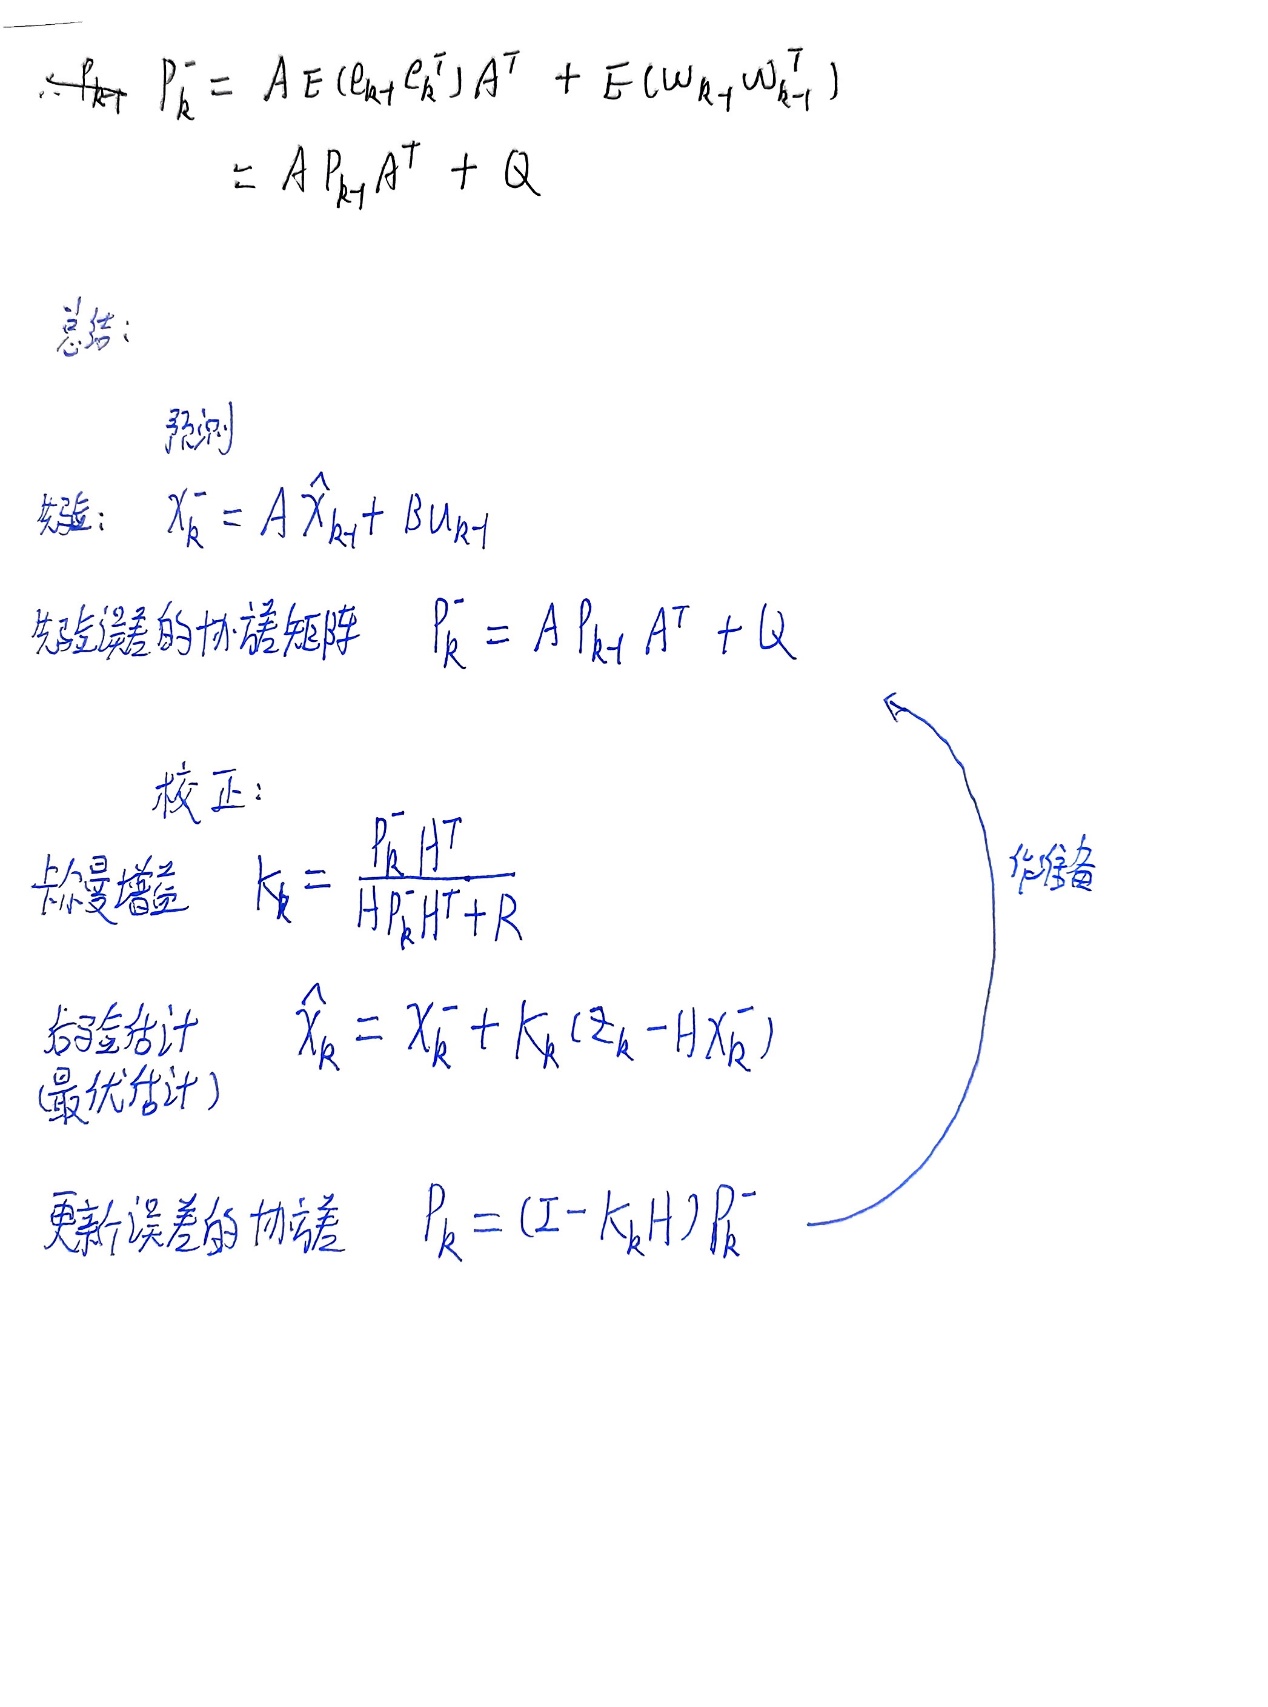 ∴ P_k^- = A E(e_{k-1} e_k^T) A^T + E(w_{k-1} w_{k-1}^T)
= A P_{k-1} A^T + Q
总结:
预测
先验: X_k^- = A X̂_{k-1} + B u_{k-1}
先验误差的协方差矩阵 P_k^- = A P_{k-1} A^T + Q
校正:
卡尔曼增益 K_k = \frac{P_k^- H^T}{H P_k^- H^T + R}
作准备
后验估计 X̂_k = X_k^- + K_k (Z_k - H X_k^-)
(最优估计)
更新误差的协方差 P_k = (I - K_k H) P_k^-